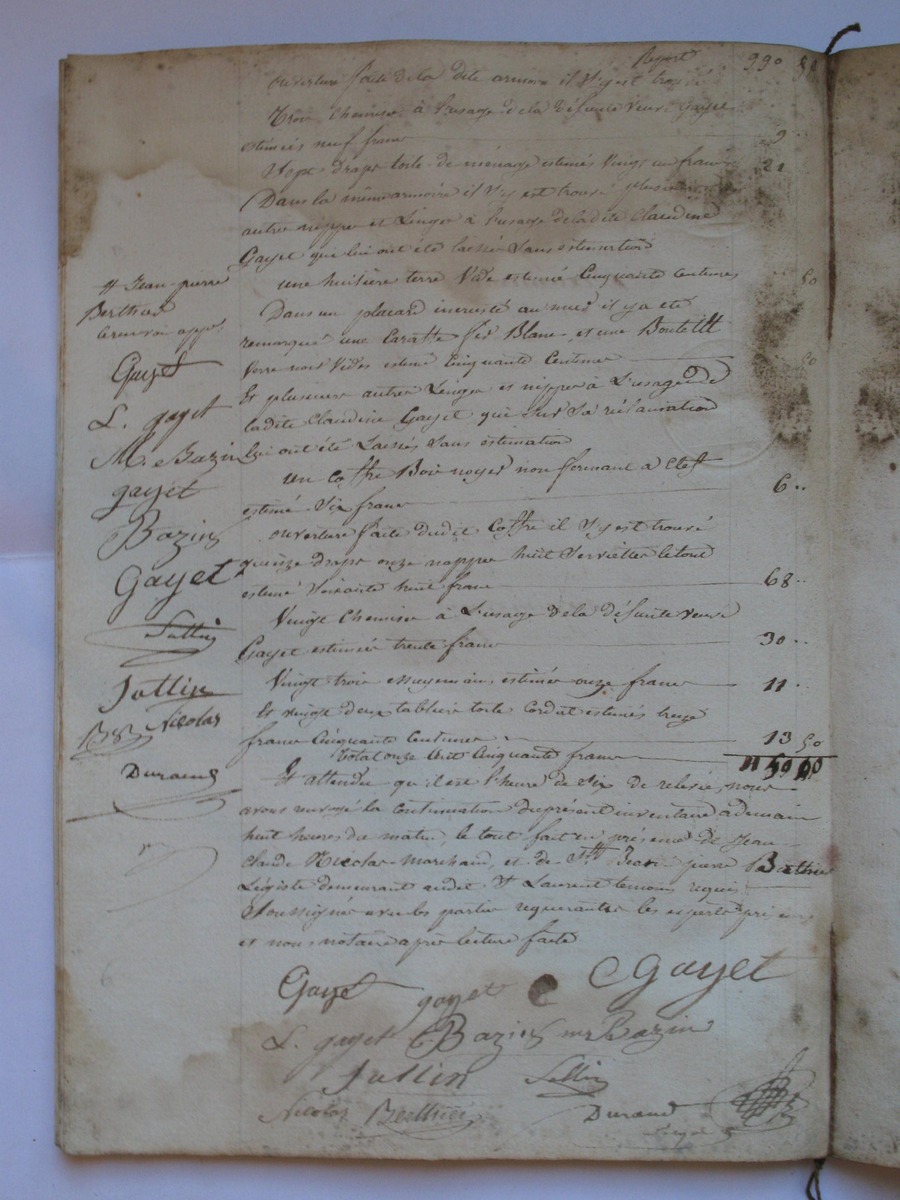 Report 990 50
ouverture faite de la dite armoire il s'y est trouvé
trois chemises à l'usage de la défunte veuve Gayet
estimées neuf francs 9
Sept draps toile de ménage estimés vingt un francs 21
Dans la même armoire il s'y est trouvé plusieurs
autres nippes et Linges à l'usage de la dite Claudine
Gayet qui lui ont été laissés sans estimation
une huilière terre vide estimée Cinquante Centimes 50
Dans un placard incrusté au mur il y a été
remarqué une Caraffe fer Blanc, et une Bouteille
verre noir vides estimé Cinquante Centimes 50
Et plusieurs autres Linges et nippes à L'usage de
ladite Claudine Gayet qui sur sa réclamation
Lui ont été Laissés sans estimation
un Coffre Bois noyer non fermant à Clef
estimé Six francs 6 ..
ouverture faite dudit Coffre il s'y est trouvé
quinze draps onze nappes huit serviettes le tout
estimé soixante huit francs 68 ..
Vingt Chemises à L'usage De la défunte veuve
Gayet estimées trente francs 30 ..
Vingt trois essuyemains estimés onze francs 11 ..
Et vingt deux tabliers toile Cordat estimés treize
francs Cinquante Centimes 13 50
Total onze Cent Cinquante francs 1150 00
Et attendu qu'il est l'heure de Six de relevée, nous
avons renvoyé la continuation du présent inventaire à demain
huit heures du matin, le tout fait en présence de Jean
Claude Nicolas Marchand, et de Jean pierre Berthier
Légiste demeurant audit St Laurent temoins requis
et soussignés avec les parties requerantes les experts
et nous notaire après lecture faite
Gayet gayet C Gayet
L. gayet Bazin Bazin
Jullin Sellin
Nicolas Berthier Durand
Jean-pierre
Berthier
renvoi app.
Gayet
L. gayet
M. Bazin
gayet
Bazin
Gayet
Sellin
Jullin
Nicolas
Durand